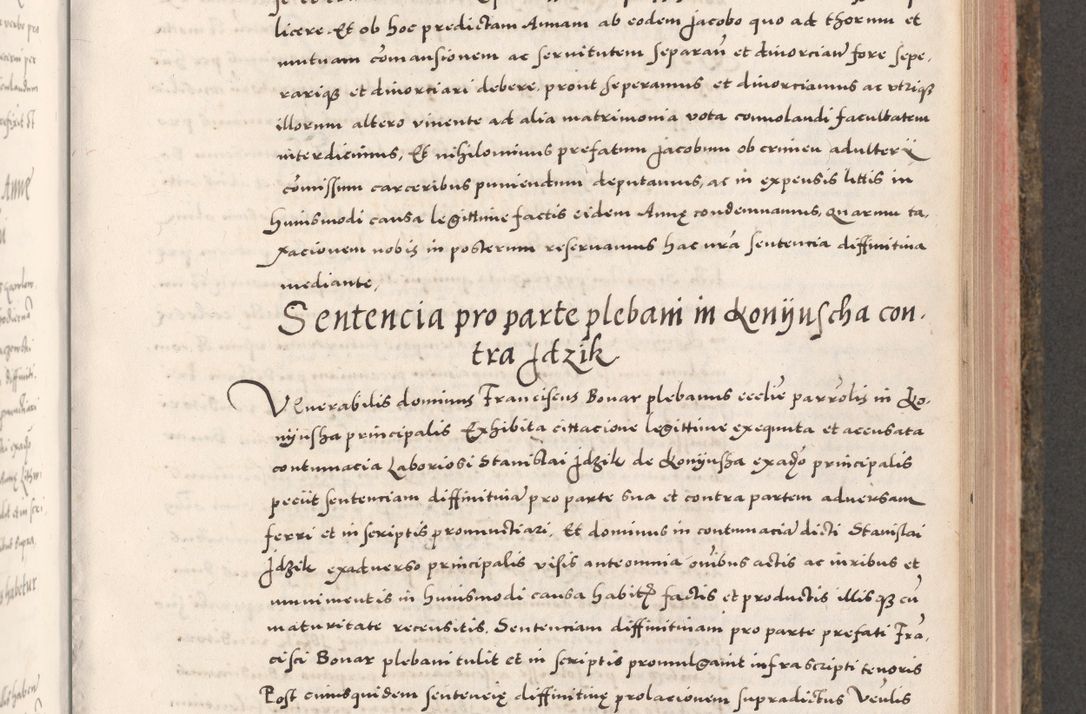 licere. Et ob hoc predictam Annam ab eodem Jacobo quo ad thorum et
mutuam cōmansionem ac servitutem separan̄ et divorcian̄ fore sepe,
rarique et divorciari debere, prout seperamus et divorciamus ac utrique
illorum altero vivente ad alia matrimonia vota convolandi facultatem
interdicimus, Et nihilominus prefatum Jacobum ob crimen adulterii
cōmissum carceribus puniendum deputamus, ac in expensis littis in
huiusmodi causa legittime factis eidem Annę condemnamus, quarum ta,
xacionem nobis in posterum reservamus hac nr̄a sentencia diffinitiva
mediante,
Sentencia pro parte plebani in Konÿuscha con,
tra Jdzik
Venerabilis dominus Franciscus Bonar plebanus ecclīe parrōlis in Ko,
nÿusha principalis Exhibita cittacione legittime exequuta et accusata
contumacia Laboriosi Stanislai Jdzik de Konÿusha exaḋo principalis
peciit sentenciam diffinitivā pro parte sua et contra partem adversam
ferri et in scriptis promunctiari, Et dominus in contumaciā dicti Stanislai
Jdzik exadverso principalis visis ante omnia om̄ibus actis ac iuribus et
munimentis in huiusmodi causa habitis factis et productis illisque cū
maturitate recensitis, Sentenciam diffinitivam pro parte prefati Frā,
cisci Bonar plebani tulit et in scriptis promulgavit infrascripti tenoris
Post cuiusquidem sentencię diffinitivę prolacionem supradictus Ven̄lis